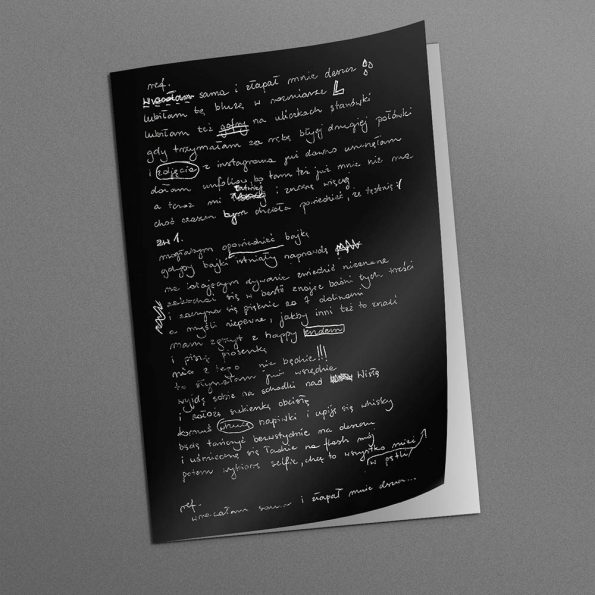 ref.
wracałam sama i złapał mnie deszcz
lubiłam tę bluzę w rozmiarze L
lubiłam też gofry na uliczkach starówki
gdy trzymałam za rękę byłej drugiej połówki
i zdjęcia z instagrama już dawno usunęłam
dałam unfollow, bo tam też już mnie nie ma
a teraz mi łatwiej i znaczę więcej
choć czasem bym chciała powiedzieć, że tęsknię
zw 1.
mogłabym opowiedzieć bajkę
gdyby bajki istniały naprawdę
na latającym dywanie zwiedzić nieznane
zakochać się w bestii znając baśni tych treści
i zaczyna się pięknie za 7 dolinami
a myśli niepewne, jakby inni też to znali
mam zgrzyt z happy endem
i piszę piosenkę
nic z tego nie będzie!!!
to słyszałam już wszędzie
wyjdę sobie na schodki nad Wisłę
i założę sukienkę obcisłą
kornuć napiwki i upiję się whisky
będę tańczyć bezwstydnie na deszczu
i uśmiechnę się ładnie na flash mój
potem wybiorę selfie, chcę to wszystko mieć
w pętli
ref.
wracałam sam... i złapał mnie deszcz...